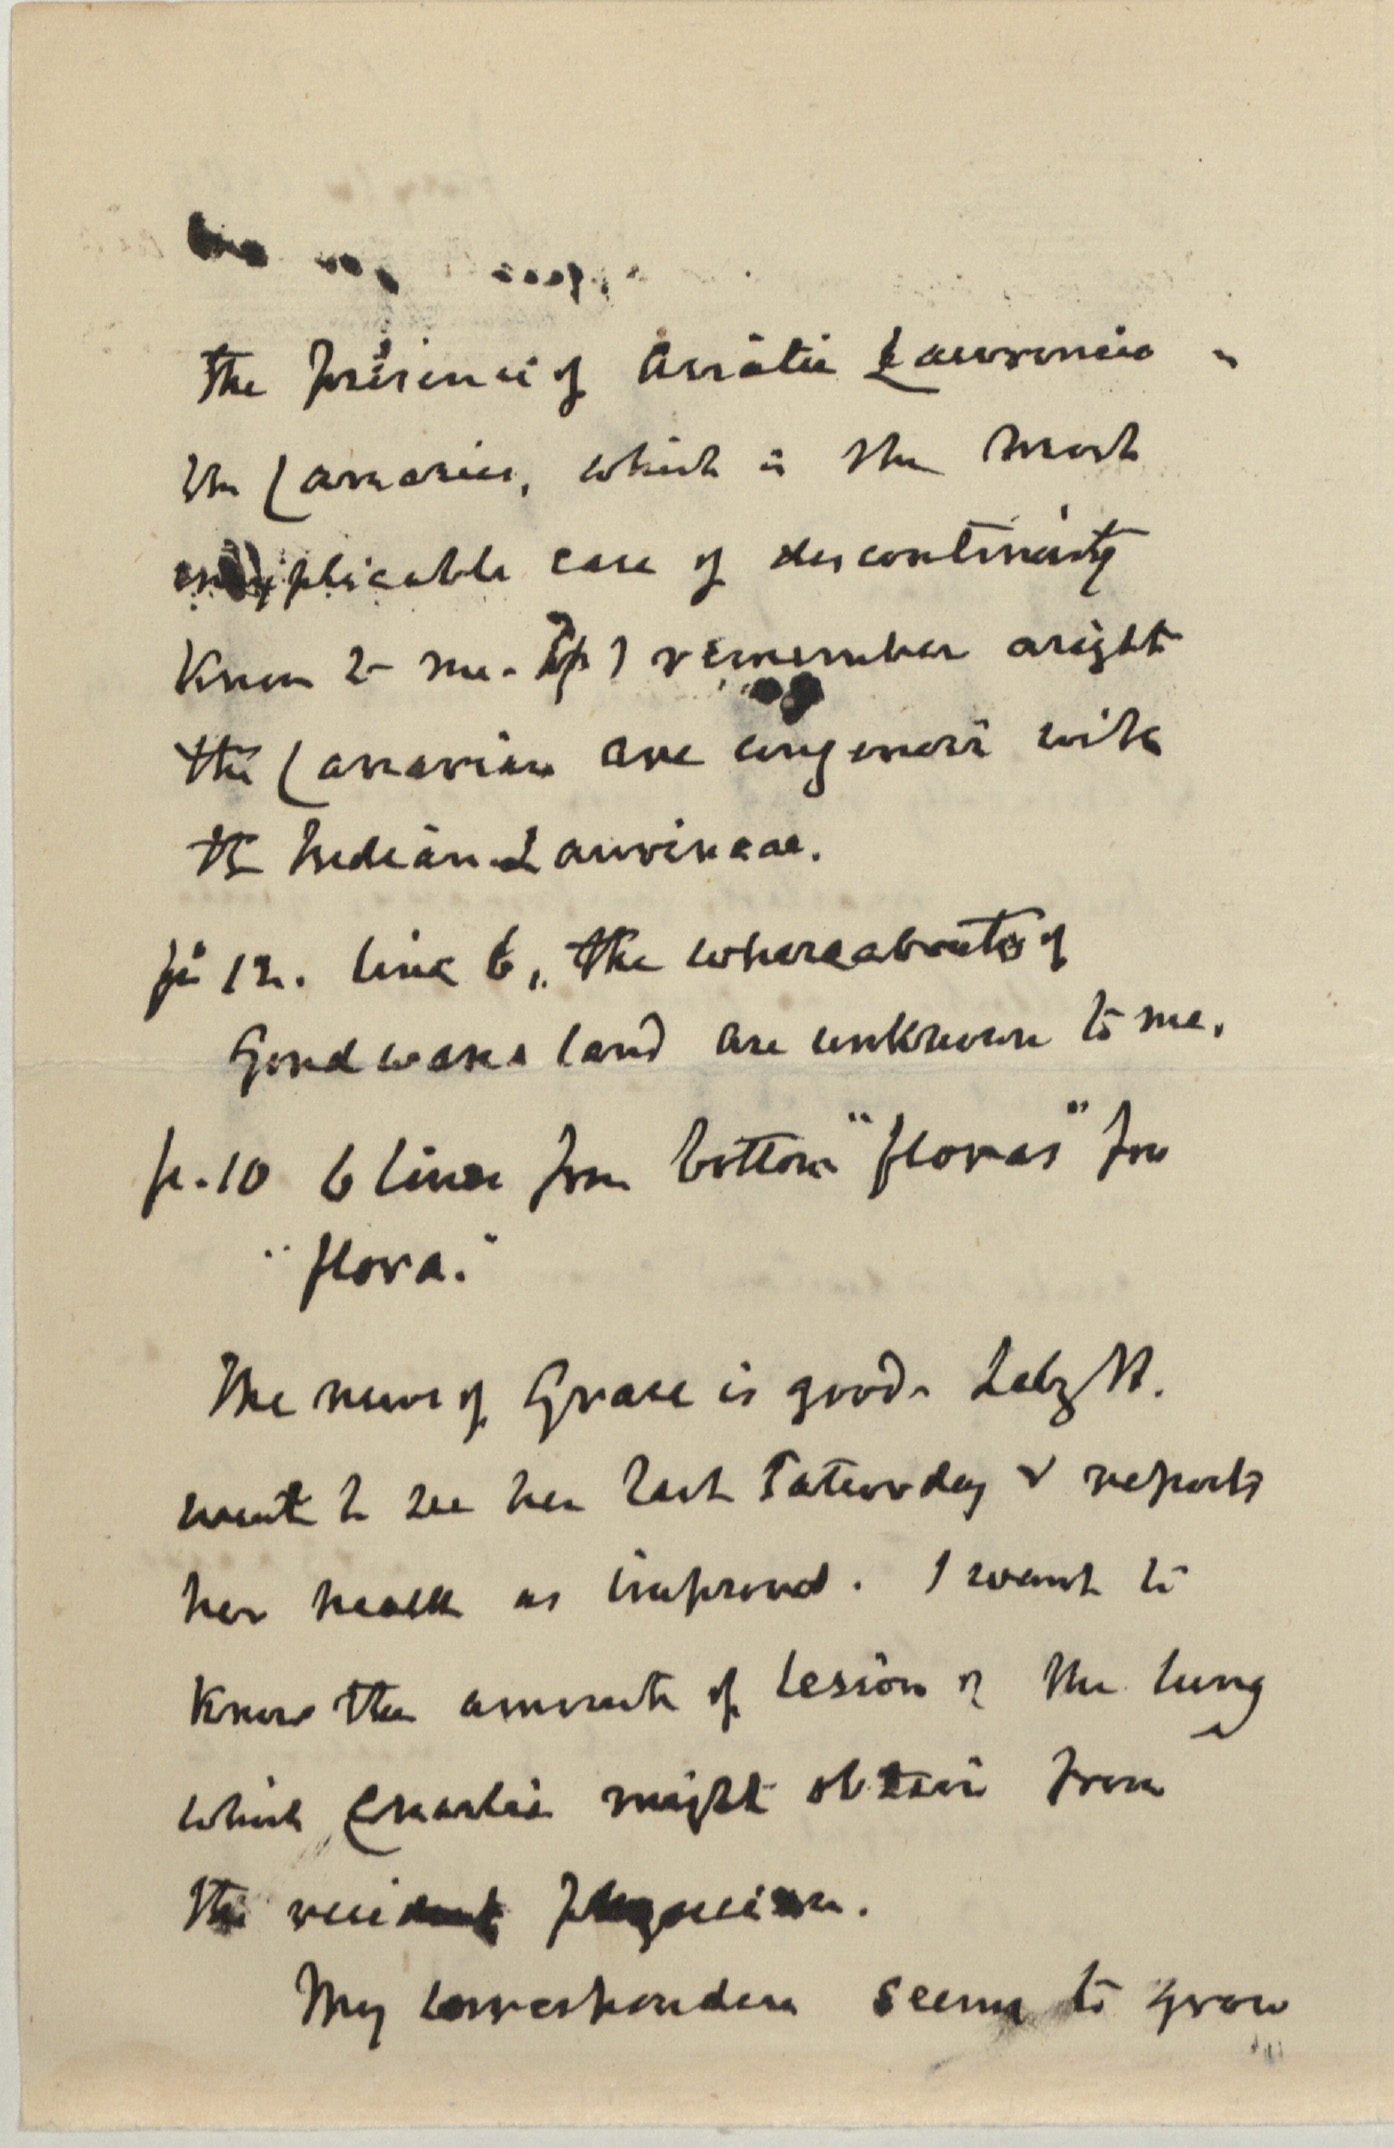 the presence of Asiatic Laurineae in
the Canaries, which is the most
inexplicable case of discontinuity
known to me. If I remember aright
the Canarian are congeneric with
the Indian Laurineae.
p. 12. line 6, the whereabouts of
Gondwana land are unknown to me.
p. 10 6 lines from bottom "floras" for
"flora."
The news of Grace is good.
went to see her last Saturday & reports
her health as improved. I want to
know the amount of lesion of the lung
which Charlie might obtain from
the resident physician.
My correspondence seems to grow